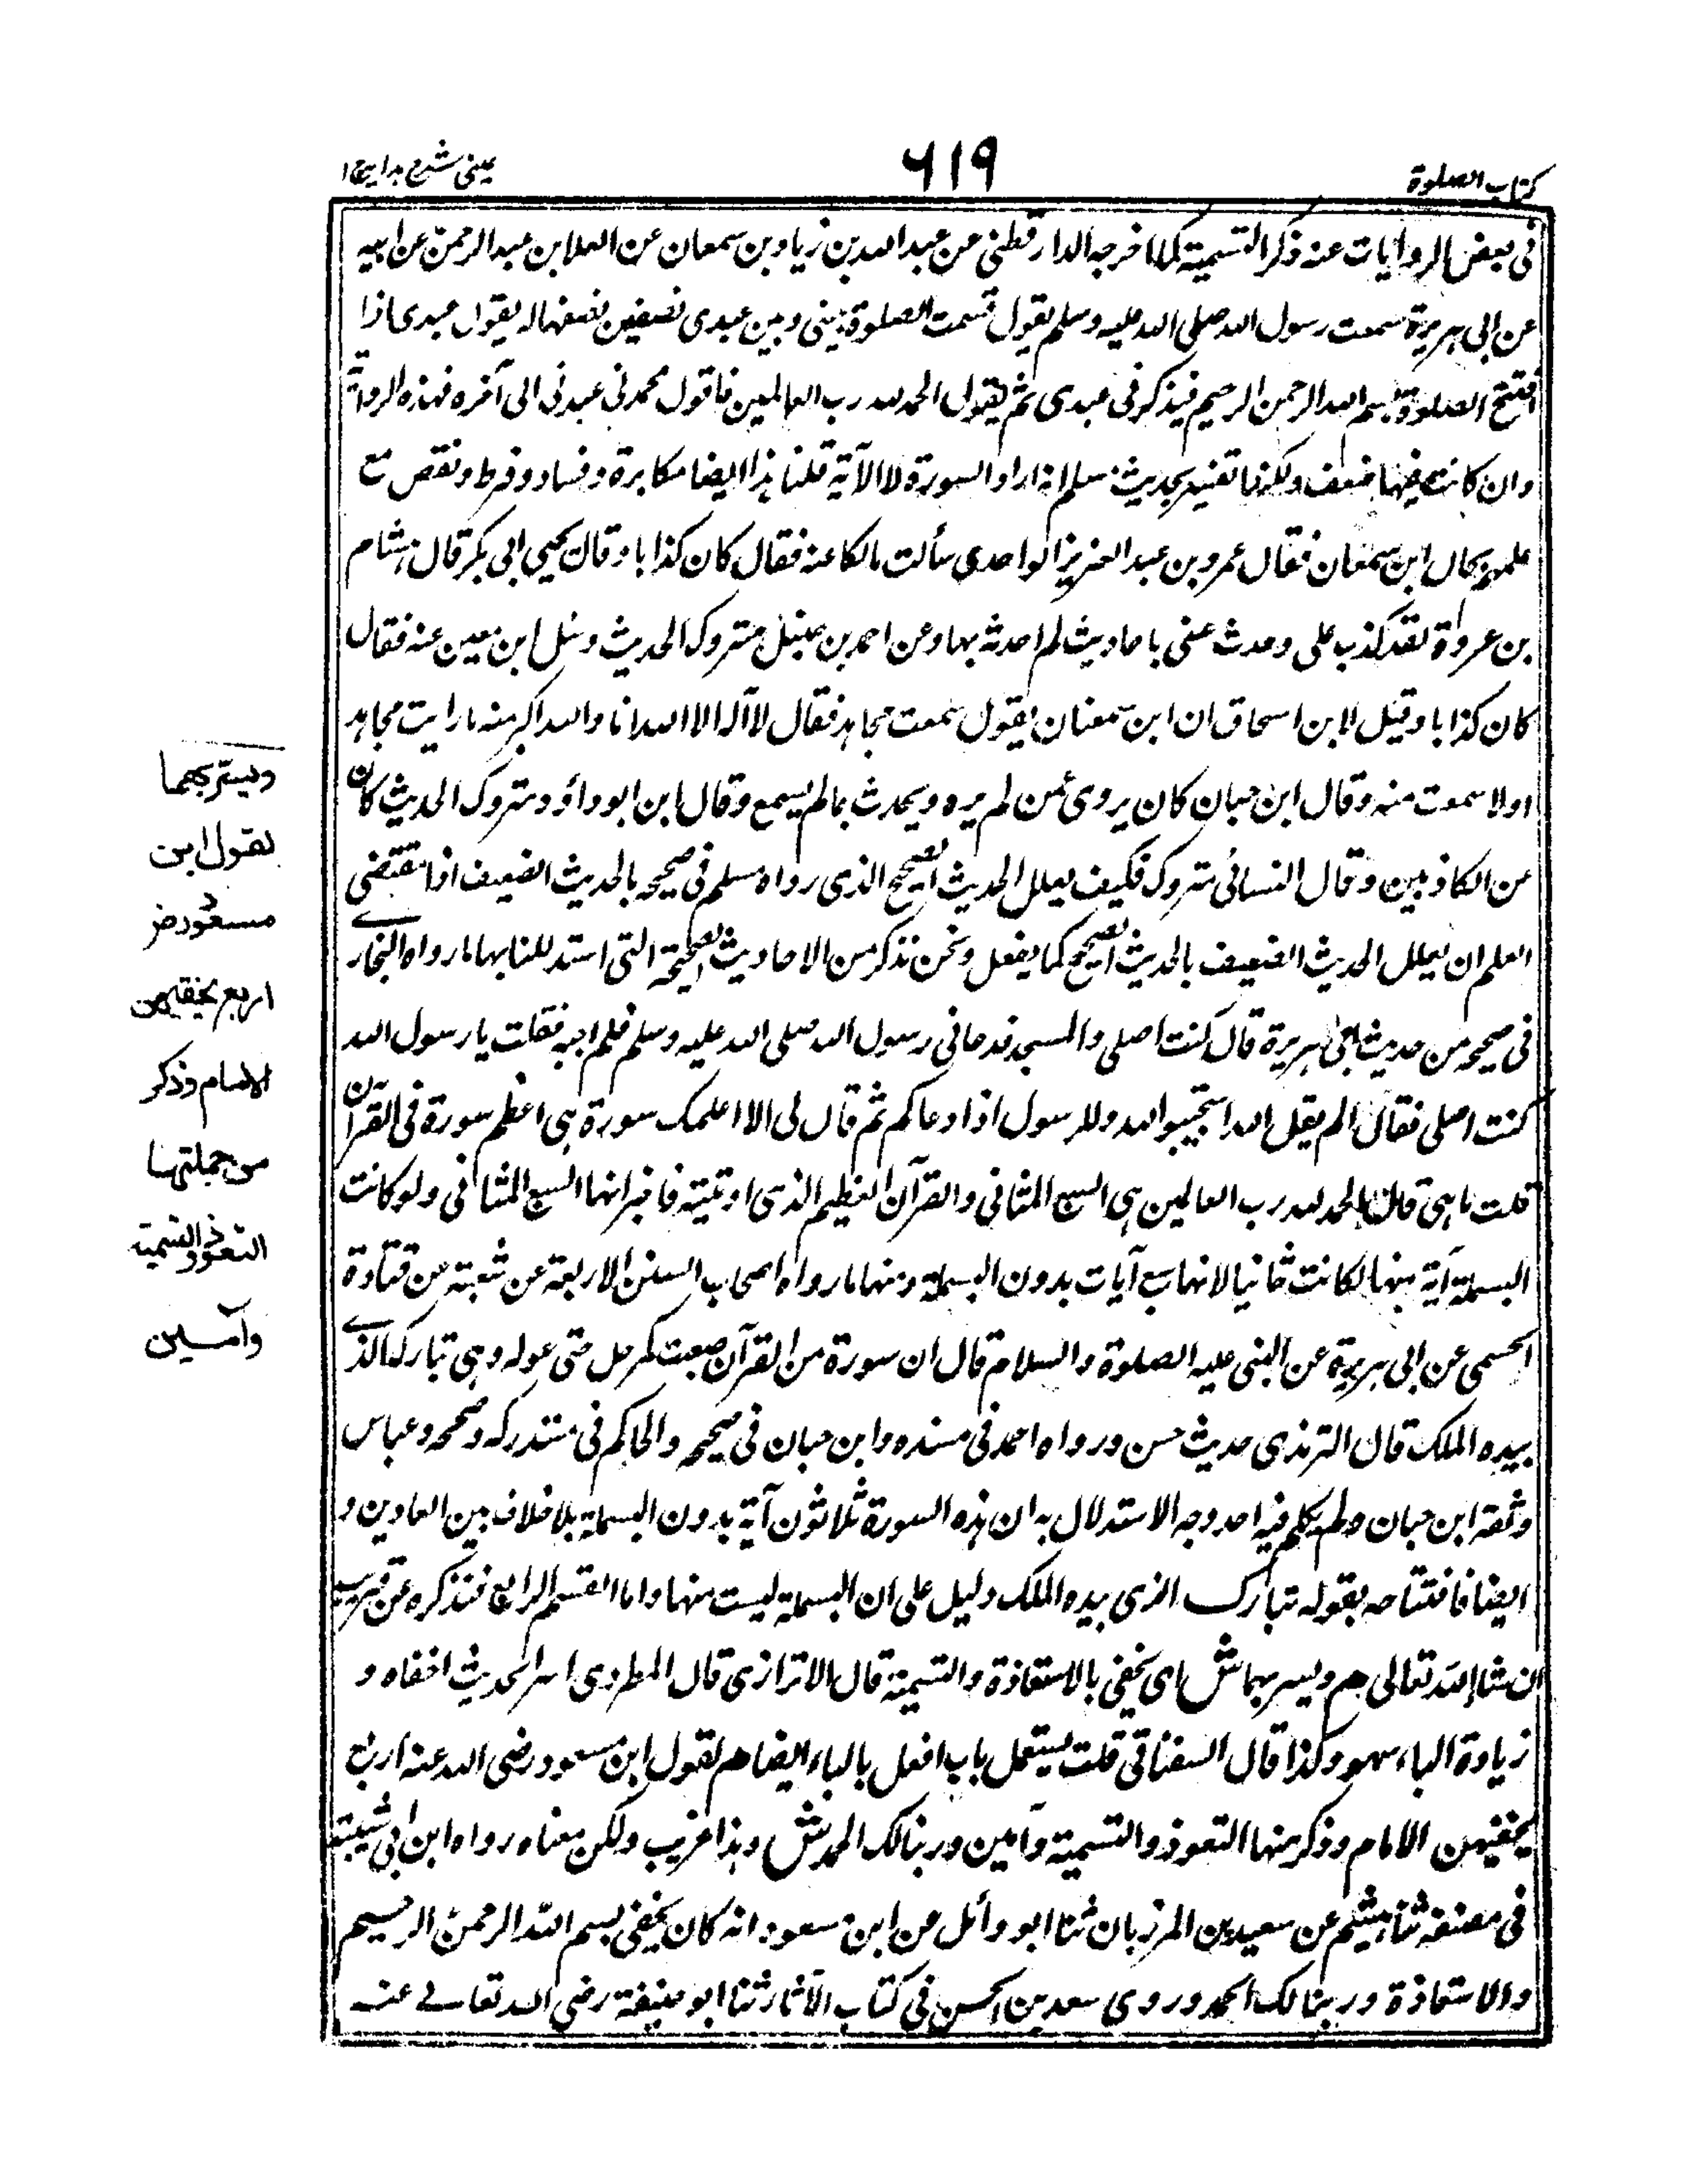 كتاب الصلوة
٦١٩
عينى شرح هدايه ج١
فى بعض الروايات عنه ذكر التسمية كما اخرجه الدارقطنى عن عبد الله بن زياد بن سمعان عن العلا بن عبد الرحمن عن ابيه
عن ابى هريرة سمعت رسول الله صلى الله عليه وسلم يقول قسمت الصلوة بينى وبين عبدى نصفين نصفها له يقول عبدى اذا
افتتح الصلوة بسم الله الرحمن الرحيم فيذكرنى عبدى ثم يقول الحمد لله رب العالمين فاقول حمدنى عبدى الى آخره فهذه الرواية
وان كانت فيها ضعف ولكنها تفسير بحديث مسلم انه اراد السورة لا الآية قلنا هذا ايضا مكابرة وفساد وفرط ونقص مع
علمهم بحال ابن سمعان فقال عمرو بن عبد العزيز الواحدى سألت مالكا عنه فقال كان كذابا وقال يحيى ابى بكر قال هشام
بن عروة لقد كذب على وحدث عنى باحاديث لم احدثه بها وعن احمد بن حنبل متروك الحديث وسئل ابن معين عنه فقال
كان كذابا وقيل لابن اسحاق ان ابن سمعان يقول سمعت مجاهد فقال لا آله الا الله انا والله اكبر منه ما رايت مجاهد
اولا سمعت منه وقال ابن حبان كان يروى عمن لم يره ويحدث بما لم يسمع وقال ابن ابو داؤد متروك الحديث كان
من الكاذبين وقال النسائى متروك فكيف يعلل الحديث الصحيح الذى رواه مسلم فى صحيحه بالحديث الضعيف اذا مقتضى
العلم ان يعلل الحديث الضعيف بالحديث الصحيح كما يفعل ونحن نذكر من الاحاديث الصحيحة التى استدللنا بها ما رواه البخارى
فى صحيحه من حديث ابى هريرة قال كنت اصلى والمسجد فدعانى رسول الله صلى الله عليه وسلم فلم اجبه فقلت يا رسول الله
كنت اصلى فقال الم يقل الله استجيبوا لله وللرسول اذا دعاكم ثم قال لى الا اعلمك سورة هى اعظم سورة فى القرآن
قلت ما هى قال الحمد لله رب العالمين هى السبع المثانى والقرآن العظيم الذى اوتيته فاخبر انها السبع المثانى ولو كانت
البسملة آية منها لكانت ثمانيا لانها سبع آيات بدون البسملة ومنها ما رواه اصحاب السنن الاربعة عن شعبة عن قتادة
الحسمى عن ابى هريرة عن النبى عليه الصلوة والسلام قال ان سورة من القرآن شفعت لرجل حتى غفر له وهى تبارك الذى
بيده الملك قال الترمذى حديث حسن ورواه احمد فى مسنده وابن حبان فى صحيحه والحاكم فى مستدركه وصححه وعباس
وثقه ابن حبان ولم يتكلم فيه احد وجه الاستدلال به ان هذه السورة ثلاثون آية بدون البسملة بلا خلاف بين العادين و
ايضا فافتتاحه بقوله تبارك الذى بيده الملك دليل على ان البسملة ليست منها واما القسم الرابع فنذكره عن قريب
ان شاء الله تعالى هم ويسر بهما ش اى يخفى بالاستعاذة والتسمية قال الاترازى قال المطرزى اسر الحديث اخفاه و
زيادة الباء سهو وكذا قال السغناقى قلت يستعمل باب افعل بالباء ايضا هم لقول ابن مسعود رضى الله عنه اربع
يخفيهن الامام وذكر منها التعوذ والتسمية وآمين وربنا لك الحمد ش وهذا غريب ولكن معناه رواه ابن ابى شيبة
فى مصنفه ثنا هشيم عن سعيد بن المرزبان ثنا ابو وائل عن ابن مسعود انه كان يخفى بسم الله الرحمن الرحيم
والاستعاذة وربنا لك الحمد وروى سعد بن الحسن فى كتاب الآثار ثنا ابو حنيفة رضى الله تعالى عنه
ويستر بهما
لقول ابن
مسعود رض
اربع يخفيهن
الامام وذكر
من جملتها
التعوذ والتسمية
وآمين